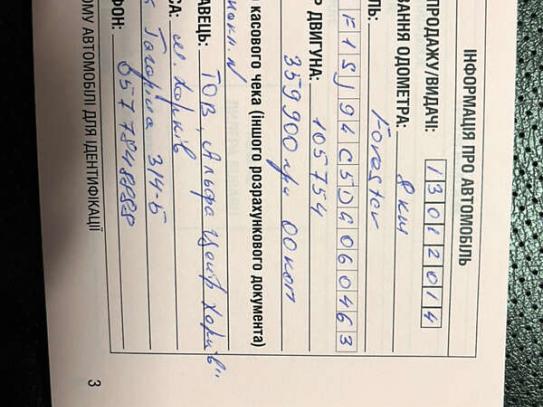 ІНФОРМАЦІЯ ПРО АВТОМОБІЛЬ
ПРОДАЖУ/ВИДАЧІ: 13012014
ВАННЯ ОДОМЕТРА: 8 км
ЛЬ: Forester
F1SJ94C5DG060463
Р ДВИГУНА: 105754
359900 грн 00 коп
касового чека (іншого розрахункового документа)
АВЕЦЬ: ТОВ „Альфа Центр Харків"
СА: м. Харків
Гагаріна 314-Б
ФОН: 057 7848888
ОМУ АВТОМОБІЛІ ДЛЯ ІДЕНТИФІКАЦІЇ
3